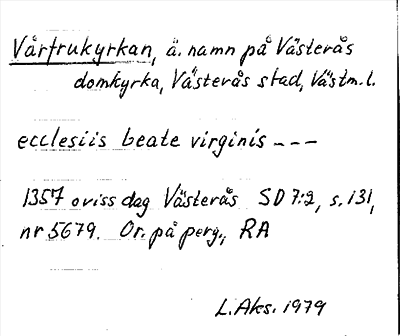 Vårfrukyrkan, ä. namn på Västerås
domkyrka, Västerås stad, Västm. l.
ecclesiis beate virginis ---
1357 oviss dag Västerås SD 7:2, s. 131,
nr 5679. Or. på perg., RA
L. Aks. 1979